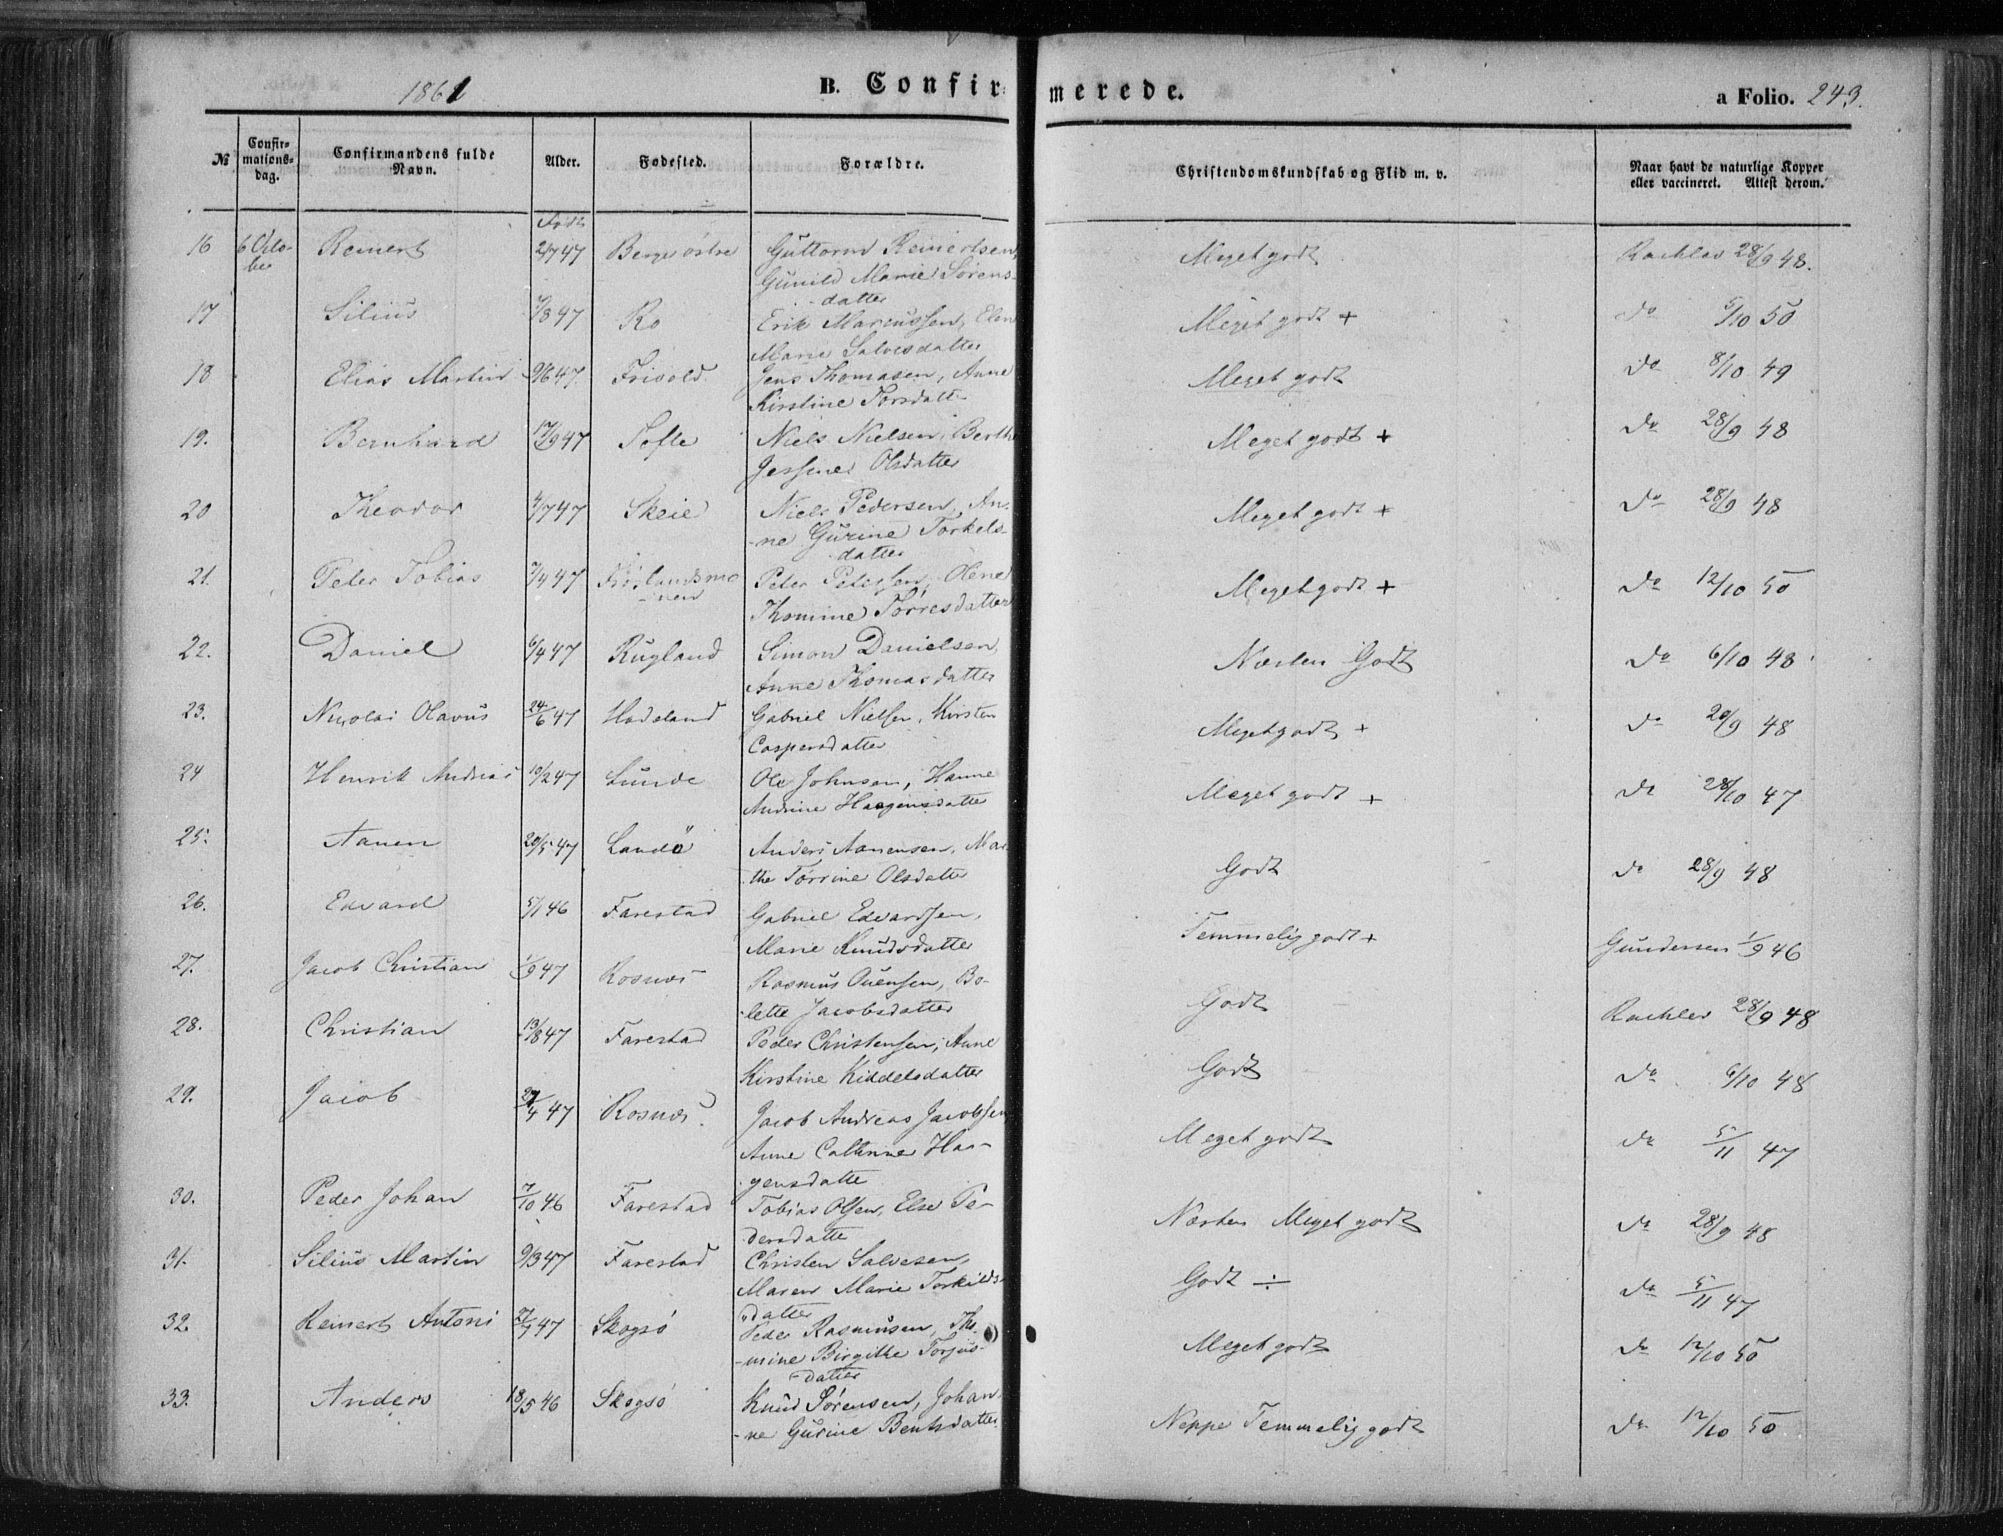 1861 B. Confirmerede. a Folio. 243.
№ Confirmationsdag. Confirmandens fulde Navn. Alder. Fødested. Forældre. Christendomskundskab og Flid m. v. Naar havt de naturlige Kopper eller vaccineret. Attest derom.
Født
16 6 Octo- Reinert 2/7 47 Berge østre Guttorm Reinertsen, Meget godt Rachlev 28/9 48.
ber Gunild Marie Sørens-
datter
17 Silius /8 47 Ro Erik Marcussen, Elen Meget godt + do 5/10 50
Marie Salvesdatter
18 Elias Martin 9/6 47. Frivold. Jens Thomasen, Anne Meget godt do 8/10 49
Kirstine Torsdatter
19. Bernhard 17/9 47 Tofte Niels Nielsen, Berthe Meget godt + do 28/9 48
Jessine Olsdatter
20 Theodor /7 47 Skeie Niels Pedersen, An- Meget godt + do 28/9 48
-ne Gurine Torkels-
datter
21. Peter Tobias 7/4 47 Peter Petersen, Olene Meget godt + do 12/10 50
Thomine Torresdatter
22. Daniel 6/4 47 Rugland Simon Danielsen, Næsten Godt do 6/10 48
Anne Thomasdatter
23. Nicolai Olavus 24/6 47 Hadeland Gabriel Nielsen, Kirsten Meget godt + do 28/9 48
Caspersdatter
24 Henrik Andreas 10/2 47 Lunde Ole Johnsen, Hanne Meget godt + do 28/10 47
Andrine Haagensdatter
25. Aanen 20/5 47 Landö Anders Aanensen, Mar- Godt do 28/9 48
the Torrine Olsdatter
26. Edvard 5/1 46 Farestad Gabriel Edvardsen, Temmelig godt + Gundersen 1/9 46
Marie Knudsdatter
27. Jacob Christian 1/9 47 Rosnæs Rasmus Ouensen, Bo- Godt Rachlev 28/9 48
-lette Jacobsdatter
28. Christian 13/8 47 Farestad Peder Christensen, Anne Godt do 6/10 48
Kirstine Kiddelsdatter
29. Jacob /4 47 Rosnæs. Jacob Andreas Jacobsen Meget godt do 5/11 47
Anne Cathrine Haa-
gensdatter
30. Peder Johan 7/10 46 Farestad Tobias Olsen, Else Pe- Næsten Meget godt do 28/9 48
dersdatter
31. Silius Martin 9/3 47 Farestad Christen Salvesen, Godt ÷ do 5/11 47
Maren Marie Torkilds-
datter
32. Reinert Antoni 47 Skogsø Peder Rasmussen, Tho- Meget godt do 12/10 50
-mine Birgitte Torjus-
datter
33. Anders 18/5 46 Skogsø Knud Sørensen, Johan- Neppe Temmelig godt do 12/10 50
-ne Gurine Bentsdatter